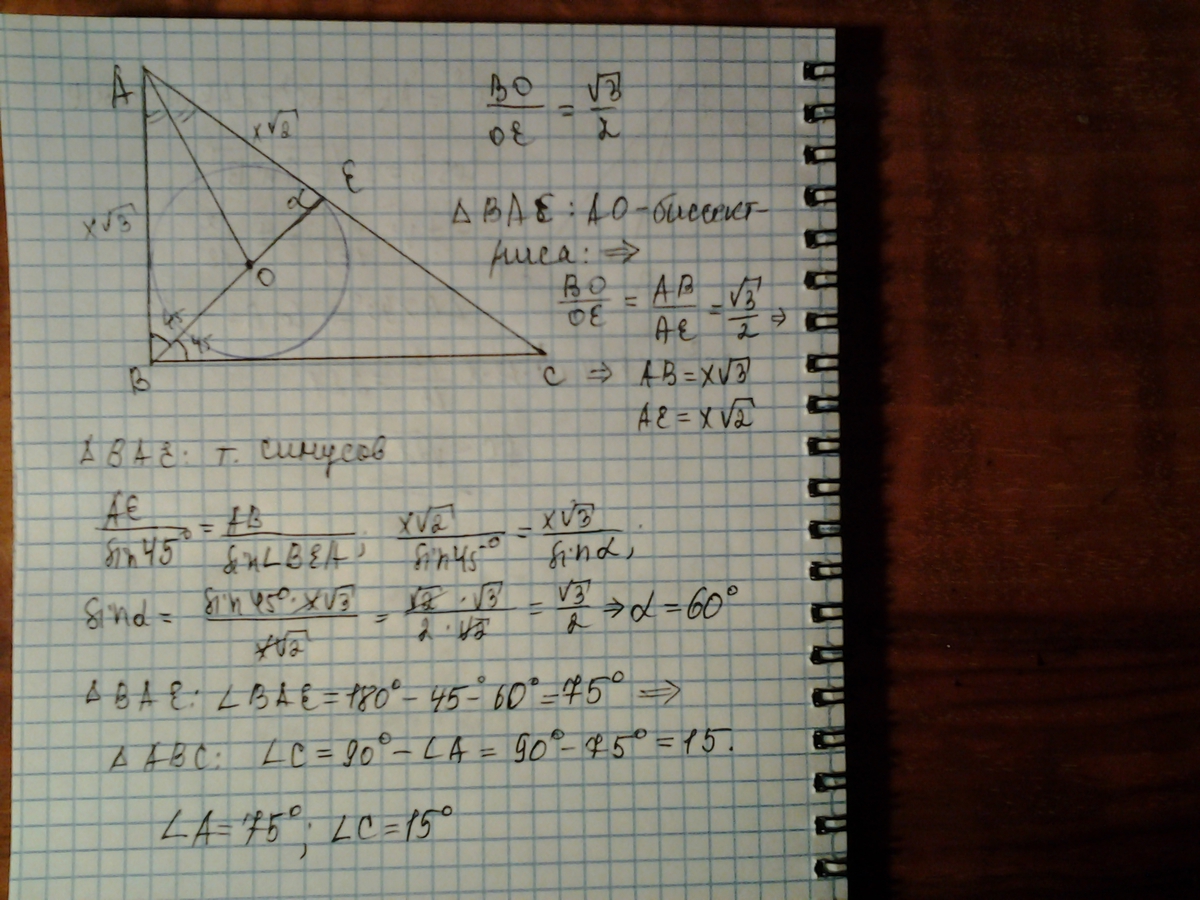 A
x√2
E
α
x√3
O
45
45
B
C
BO/OE = √3/2
△BAE: AO - биссект-
риса: ⇒
BO/OE = AB/AE = √3/2 ⇒
⇒ AB = x√3
AE = x√2
△BAE: т. синусов
AE/sin45° = AB/sin∠BEA; x√2/sin45° = x√3/sinα;
sinα = sin45°·x√3/x√2 = √2·√3/2·√2 = √3/2 ⇒ α = 60°
△BAE: ∠BAE = 180° - 45-° 60° = 75° ⇒
△ABC: ∠C = 90° - ∠A = 90° - 75° = 15.
∠A = 75°; ∠C = 15°